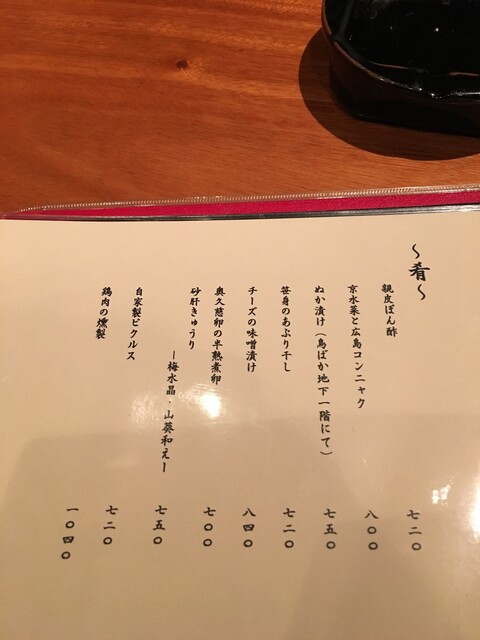 ～肴～
親皮ぽん酢 七二〇
京水菜と広島コンニャク 八〇〇
ぬか漬け（鳥ばか地下一階にて） 七五〇
笹身のあぶり干し 七二〇
チーズの味噌漬け 八四〇
奥久慈卵の半熟煮卵 七〇〇
砂肝きゅうり 七五〇
ー梅水晶・山葵和えー
自家製ピクルス 七二〇
鶏肉の燻製 一〇四〇